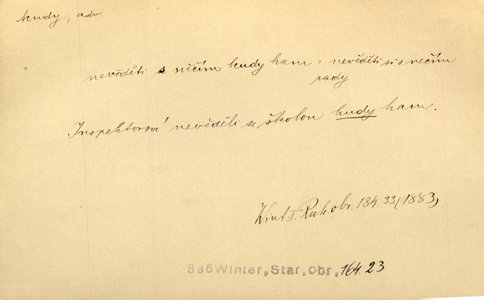 kudy, adv.
nevěděti s něčím kudy kam: nevěděti si s něčím
rady
Inspektorové nevěděli se školou kudy kam.
Wint. I. Rak. obr. 184. 33, (1883)
836 Winter, Star. obr. 164. 23